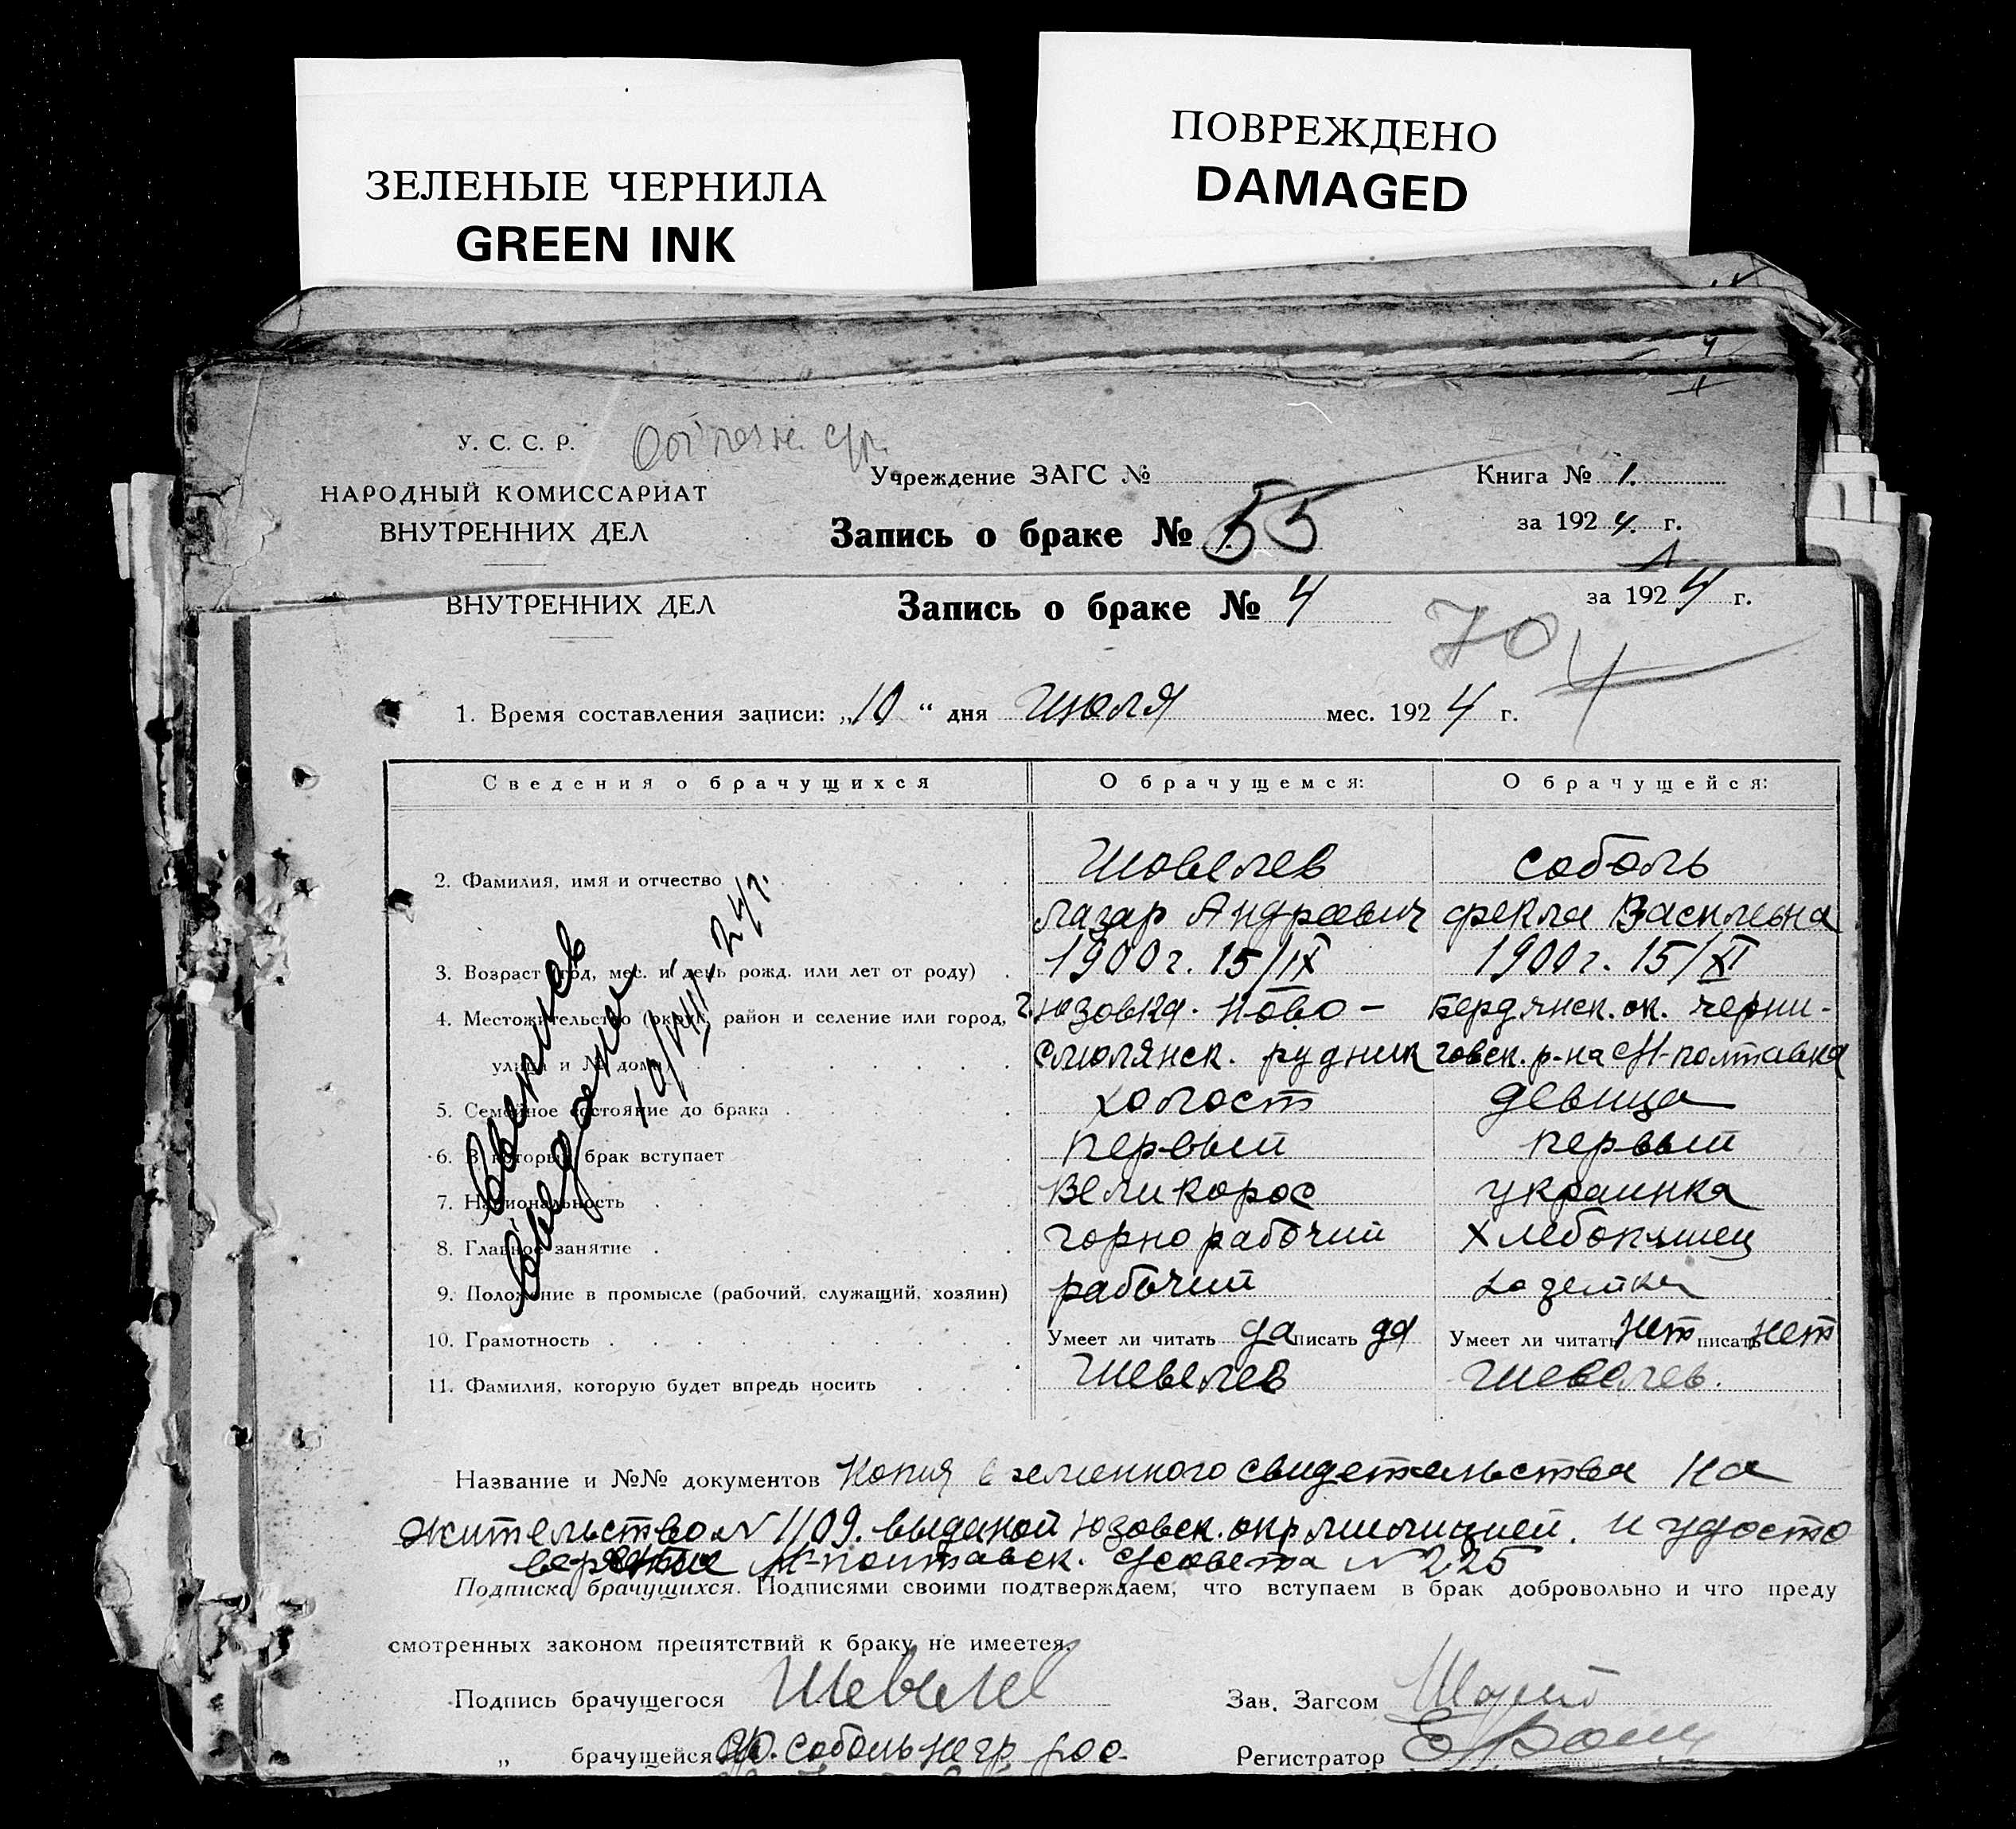 ЗЕЛЕНЫЕ ЧЕРНИЛА
GREEN INK
ПОВРЕЖДЕНО
DAMAGED
У. С. С. Р.
НАРОДНЫЙ КОМИССАРИАТ
ВНУТРЕННИХ ДЕЛ
Учреждение ЗАГС №
Книга № 1.
Запись о браке № 55
за 1924. г.
ВНУТРЕННИХ ДЕЛ
Запись о браке № 4
за 1924 г.
70
4
1. Время составления записи: „10“ дня Июля мес. 1924 г.
Сведения о брачущихся О брачущемся: О брачущейся:
2. Фамилия, имя и отчество Шовелев Соболь
Лазар Андреевич Фекла Васильевна
3. Возраст (год, мес. и день рожд. или лет от роду) 1900 г. 15/IX 1900 г. 15/XI
4. Местожительство (округ, район и селение или город, г. Юзовка. Ново- Бердянск. ок. Черни-
улица и № дома) Смолянск. рудник говск. р-на М-Полтавка
5. Семейное состояние до брака холост девица
6. В который брак вступает первый первый
7. Национальность Великорос украинка
8. Главное занятие горнорабочий Хлебопашец
9. Положение в промысле (рабочий, служащий, хозяин) рабочий хозяйка
10. Грамотность Умеет ли читать да писать да Умеет ли читать нет писать нет
11. Фамилия, которую будет впредь носить Шевелев Шевелев.
выдан
10/VII-24 г.
Название и №№ документов Копия временного свидетельства на
жительство № 1109. выданой Юзовск. окрмилицией. и удосто
верения М-Полтавск. с/совета № 225
Подписка брачущихся. Подписями своими подтверждаем, что вступаем в брак добровольно и что преду
смотренных законом препятствий к браку не имеется.
Подпись брачущегося Шевелев Зав. Загсом
„ брачущейся Ф. Соболь негр рос. Регистратор